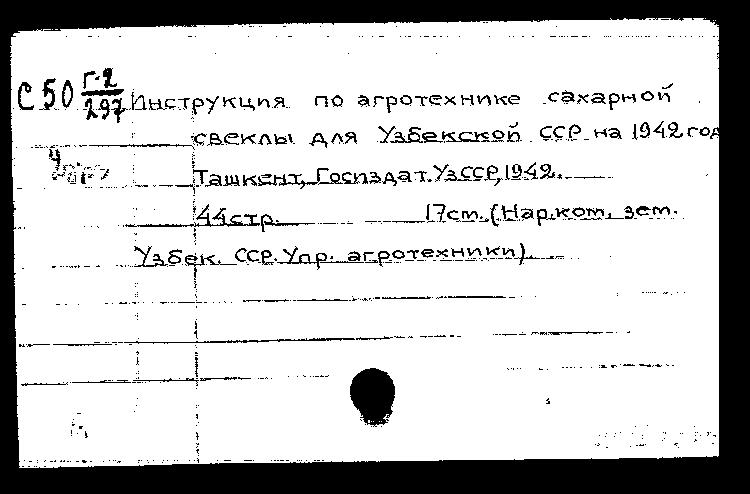 С 50 Г-2
297
Инструкция по агротехнике сахарной
свеклы для Узбекской ССР на 1942 год
Ташкент, Госиздат. УзССР, 1942.
44 стр. 17 cm. (Нар. ком. зем.
Узбек. ССР. Упр. агротехники).